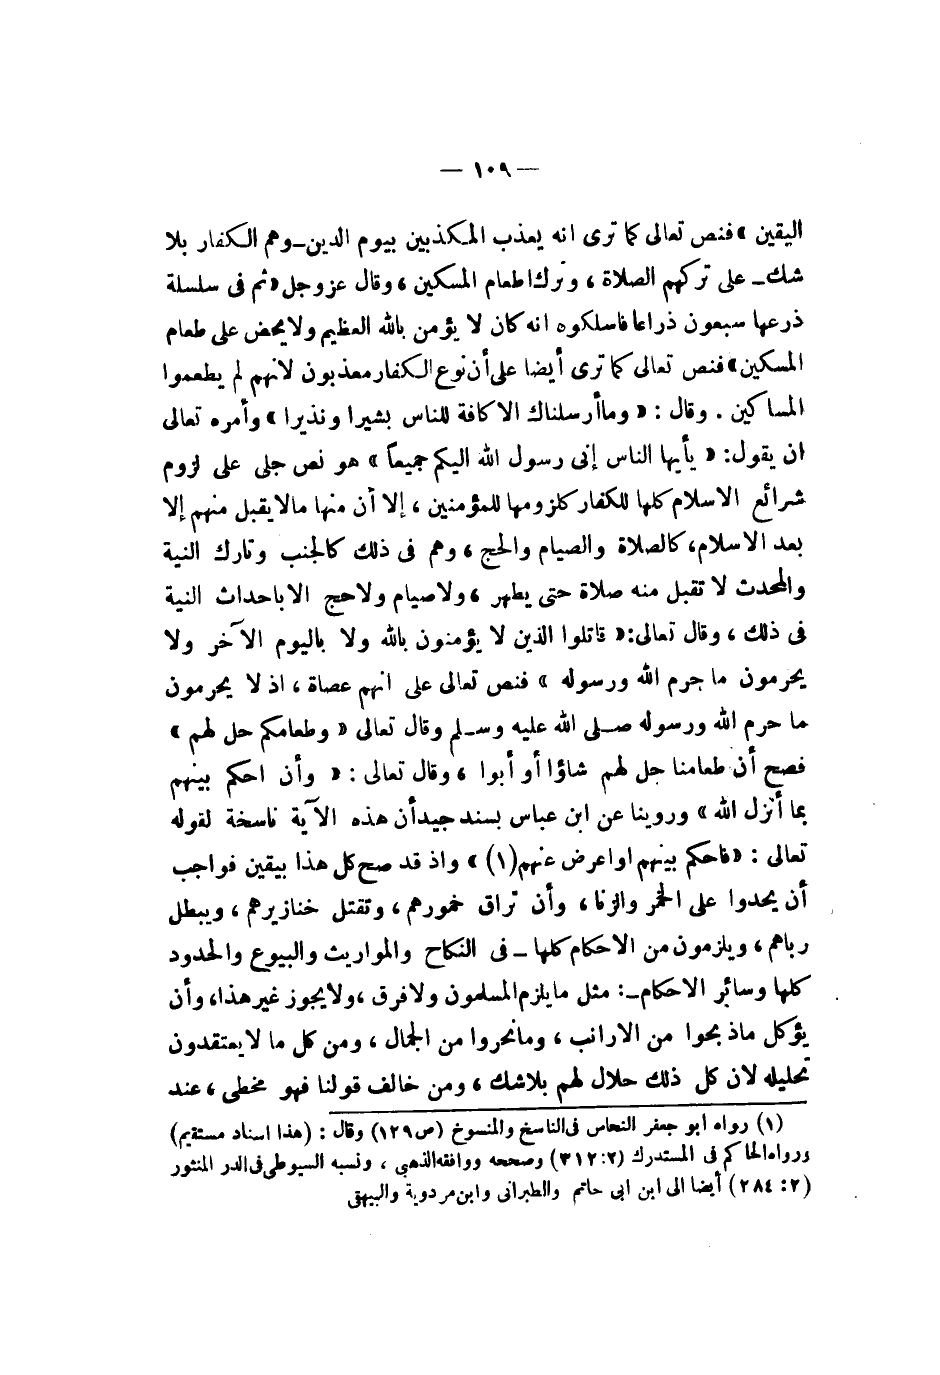 — ١٠٩ —
اليقين » فنص تعالى كما ترى انه يعذب المكذبين بيوم الدين ـ وهم الكفار بلا
شك ـ على تركهم الصلاة ، وترك اطعام المسكين ، وقال عز وجل « ثم فى سلسلة
ذرعها سبعون ذراعا فاسلكوه انه كان لا يؤمن بالله العظيم ولا يحض على طعام
المسكين » فنص تعالى كما ترى أيضا على أن نوع الكفار معذبون لانهم لم يطعموا
المساكين . وقال : « وما أرسلناك الا كافة للناس بشيرا ونذيرا » وأمره تعالى
ان يقول : « يأيها الناس إنى رسول الله اليكم جميعاً » هو نص جلى على لزوم
شرائع الاسلام كلها للكفار كلزومها للمؤمنين ، إلا أن منها مالا يقبل منهم إلا
بعد الاسلام ، كالصلاة والصيام والحج ، وهم فى ذلك كالجنب وتارك النية
والمحدث لا تقبل منه صلاة حتى يطهر ، ولا صيام ولا حج الا باحداث النية
فى ذلك ، وقال تعالى : « قاتلوا الذين لا يؤمنون بالله ولا باليوم الآخر ولا
يحرمون ما حرم الله ورسوله » فنص تعالى على انهم عصاة ، اذ لا يحرمون
ما حرم الله ورسوله صلى الله عليه وسلم وقال تعالى « وطعامكم حل لهم »
فصح أن طعامنا حل لهم شاؤا أو أبوا ، وقال تعالى : « وأن احكم بينهم
بما أنزل الله » وروينا عن ابن عباس بسند جيد أن هذه الآية ناسخة لقوله
تعالى : « فاحكم بينهم او اعرض عنهم (١) » واذ قد صح كل هذا بيقين فواجب
أن يحدوا على الخمر والزنا ، وأن تراق خمورهم ، وتقتل خنازيرهم ، ويبطل
رباهم ، ويلزمون من الاحكام كلها ـ فى النكاح والمواريث والبيوع والحدود
كلها وسائر الاحكام ـ : مثل ما يلزم المسلمون ولا فرق ، ولا يجوز غير هذا ، وأن
يؤكل ماذبحوا من الارانب ، ومانحروا من الجمال ، ومن كل ما لا يعتقدون
تحليله لان كل ذلك حلال لهم بلاشك ، ومن خالف قولنا فهو مخطى ، عند
(١) رواه ابو جعفر النحاس فى الناسخ والمنسوخ (ص ١٢٩) وقال : (هذا اسناد مستقيم)
ورواه الحاكم فى المستدرك (٢ : ٣١٢) وصححه ووافقه الذهبى ، ونسبه السيوطى فى الدر المنثور
(٢ : ٢٨٤) أيضا الى ابن ابى حاتم والطبرانى وابن مردوية والبيهقى